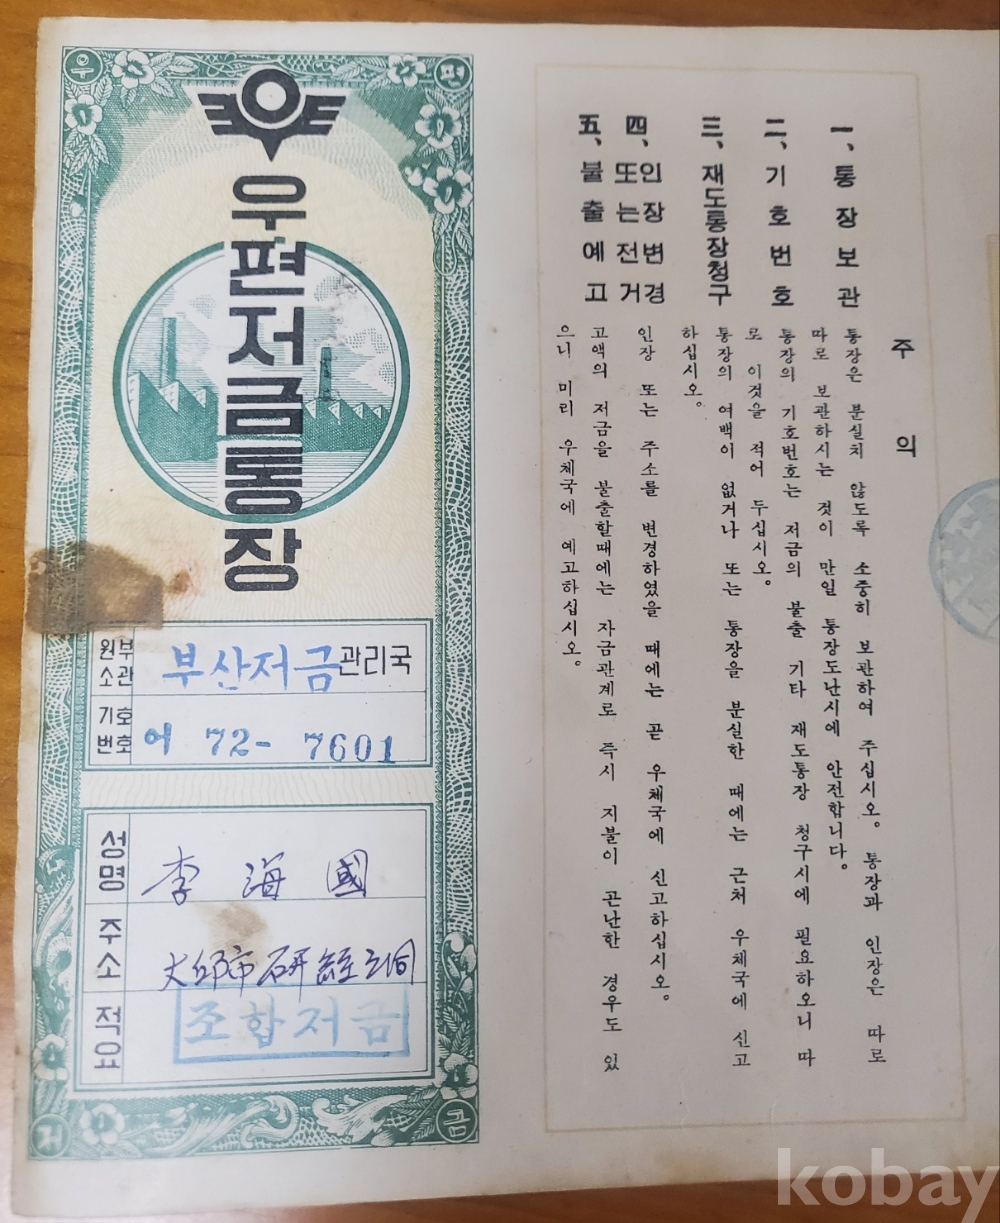 우 편
우편저금통장
원부
소관
부산저금관리국
기호
번호
어 72- 7601
성명
李 海 國
주소
大邱市 研經洞
적요
조합저금
저 금
주 의
一、통장보관
통장은 분실치 않도록 소중히 보관하여 주십시오。 통장과 인장은 따로
따로 보관하시는 것이 만일 통장도난시에 안전합니다。
二、기호번호
통장의 기호번호는 저금의 불출 기타 재도통장 청구시에 필요하오니 따
로 이것을 적어 두십시오。
三、재도통장청구
통장의 여백이 없거나 또는 통장을 분실한 때에는 근처 우체국에 신고
하십시오。
四、인장변경
또는전거
인장 또는 주소를 변경하였을 때에는 곧 우체국에 신고하십시오。
五、불출예고
고액의 저금을 불출할때에는 자금관계로 즉시 지불이 곤난한 경우도 있
으니 미리 우체국에 예고하십시오。
kobay